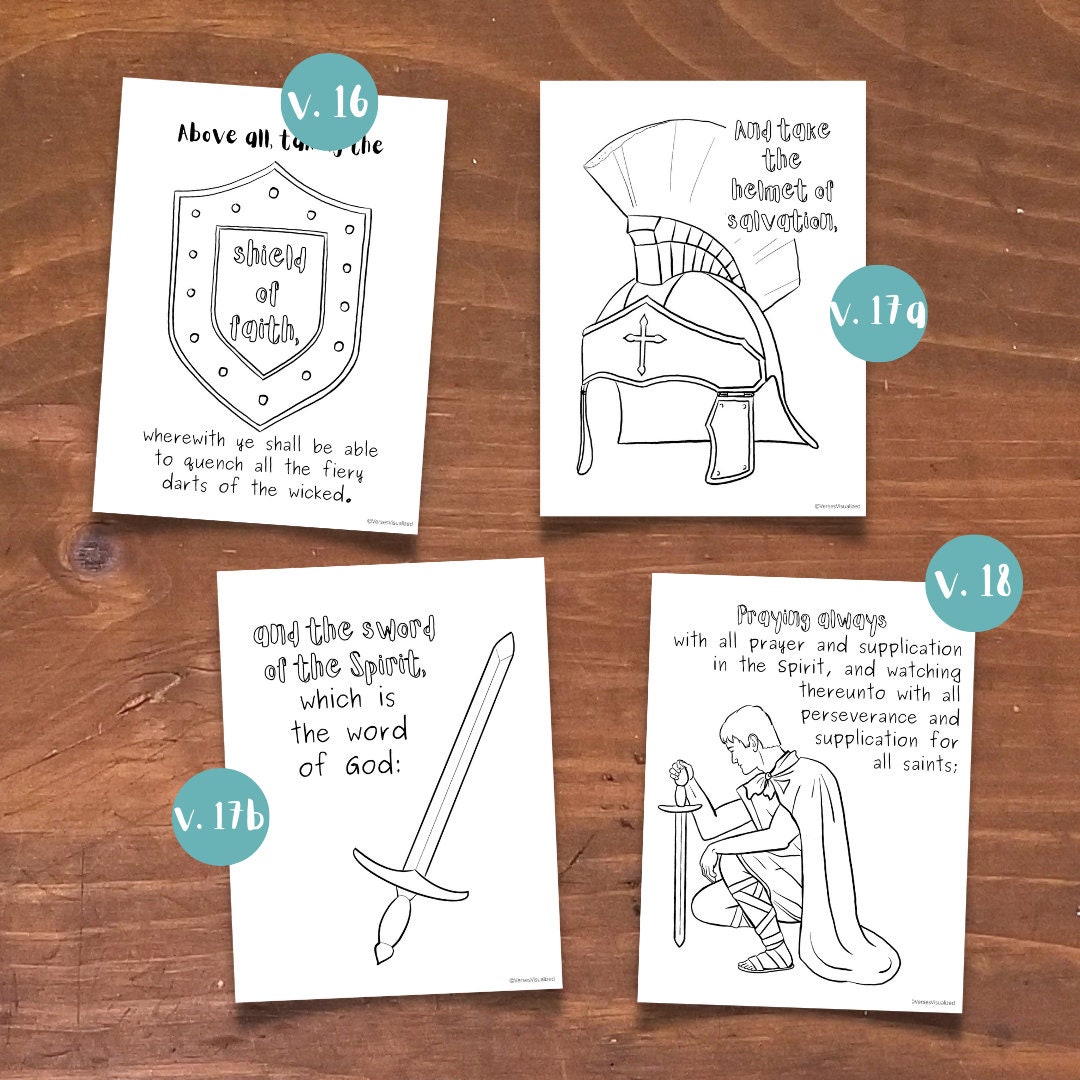 v. 16
Above all, taking the
shield
of
faith,
wherewith ye shall be able
to quench all the fiery
darts of the wicked.
©VersesVisualized
And take
the
helmet of
salvation,
v. 17a
©VersesVisualized
and the sword
of the Spirit,
which is
the word
of God:
v. 17b
©VersesVisualized
v. 18
Praying always
with all prayer and supplication
in the Spirit, and watching
thereunto with all
perseverance and
supplication for
all saints;
©VersesVisualized